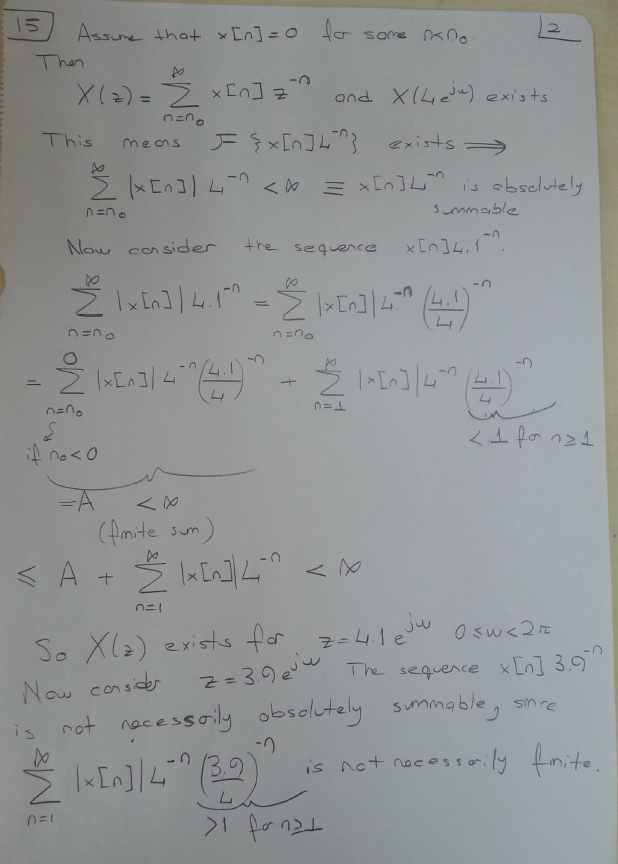 15] Assume that x[n]=0 for some n<n₀. 2
Then
X(z) = ∑_{n=n₀}^{∞} x[n] z^{-n} and X(4e^{jω}) exists
This means F{x[n]4^{-n}} exists ⟹
∑_{n=n₀}^{∞} |x[n]| 4^{-n} < ∞ ≡ x[n]4^{-n} is absolutely
summable
Now consider the sequence x[n]4.1^{-n}.
∑_{n=n₀}^{∞} |x[n]| 4.1^{-n} = ∑_{n=n₀}^{∞} |x[n]| 4^{-n} (4.1/4)^{-n}
= ∑_{n=n₀}^{0} |x[n]| 4^{-n} (4.1/4)^{-n} + ∑_{n=1}^{∞} |x[n]| 4^{-n} (4.1/4)^{-n}
if n₀<0
< 1 for n≥1
=A < ∞
(finite sum)
≤ A + ∑_{n=1}^{∞} |x[n]| 4^{-n} < ∞
So X(z) exists for z=4.1e^{jω} 0≤ω<2π
Now consider z=3.9e^{jω}. The sequence x[n] 3.9^{-n}
is not necessarily absolutely summable, since
∑_{n=1}^{∞} |x[n]| 4^{-n} (3.9/4)^{-n} is not necessarily finite.
>1 for n≥1